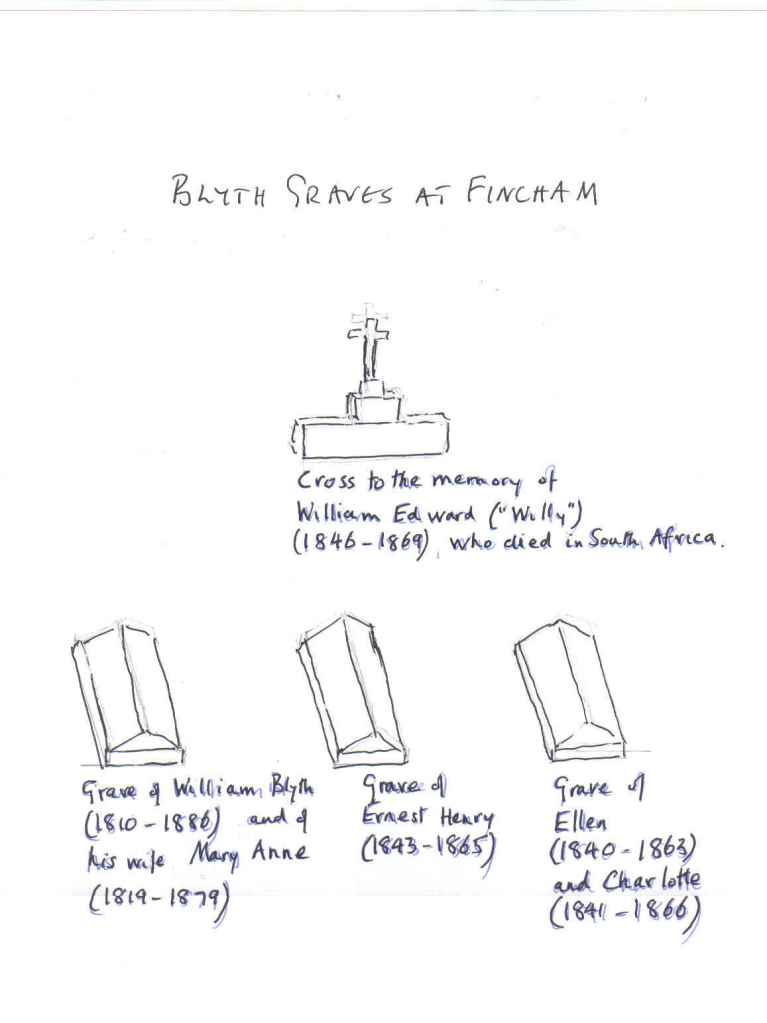 BLYTH GRAVES AT FINCHAM
Cross to the memory of
William Edward ("Willy")
(1846-1869), who died in South Africa.
Grave of William Blyth
(1810-1886) and of
his wife Mary Anne
(1819-1879)
Grave of
Ernest Henry
(1843-1865)
Grave of
Ellen
(1840-1863)
and Charlotte
(1841-1866)